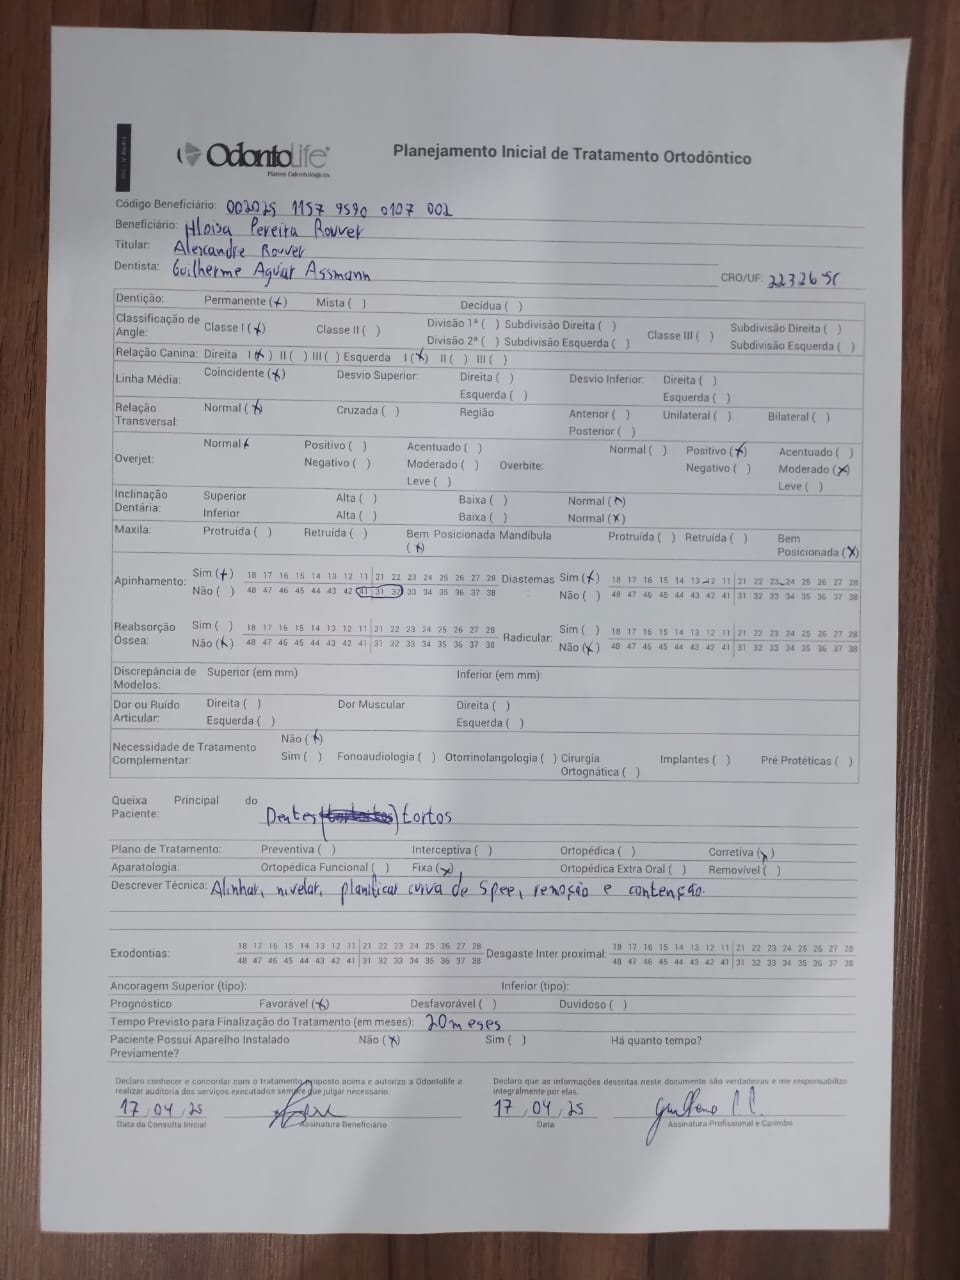 OdontoLife
Planos Odontológicos
Planejamento Inicial de Tratamento Ortodôntico
Código Beneficiário: 002025 1157 9590 0107 002
Beneficiário: Hloisa Pereira Rovver
Titular: Alexandre Rovver
Dentista: Guilherme Aguiar Assmann CRO/UF: 22326 SC
Dentição: Permanente (x) Mista ( ) Decídua ( )
Classificação de Angle: Classe I (x) Classe II ( ) Divisão 1ª ( ) Subdivisão Direita ( ) Classe III ( ) Subdivisão Direita ( )
Divisão 2ª ( ) Subdivisão Esquerda ( ) Subdivisão Esquerda ( )
Relação Canina: Direita I (x) II ( ) III ( ) Esquerda I (x) II ( ) III ( )
Linha Média: Coincidente (x) Desvio Superior: Direita ( ) Desvio Inferior: Direita ( )
Esquerda ( ) Esquerda ( )
Relação Transversal: Normal (x) Cruzada ( ) Região Anterior ( ) Unilateral ( ) Bilateral ( )
Posterior ( )
Overjet: Normal x Positivo ( ) Acentuado ( ) Overbite: Normal ( ) Positivo (x) Acentuado ( )
Negativo ( ) Moderado ( ) Negativo ( ) Moderado (x)
Leve ( ) Leve ( )
Inclinação Dentária: Superior Alta ( ) Baixa ( ) Normal (x)
Inferior Alta ( ) Baixa ( ) Normal (x)
Maxila: Protruída ( ) Retruída ( ) Bem Posicionada (x) Mandíbula Protruída ( ) Retruída ( ) Bem Posicionada (x)
Apinhamento: Sim (x) 18 17 16 15 14 13 12 11 21 22 23 24 25 26 27 28 Diastemas: Sim (x) 18 17 16 15 14 13 12 11 21 22 23 24 25 26 27 28
Não ( ) 48 47 46 45 44 43 42 41 31 32 33 34 35 36 37 38 Não ( ) 48 47 46 45 44 43 42 41 31 32 33 34 35 36 37 38
Reabsorção Óssea: Sim ( ) 18 17 16 15 14 13 12 11 21 22 23 24 25 26 27 28 Radicular: Sim ( ) 18 17 16 15 14 13 12 11 21 22 23 24 25 26 27 28
Não (x) 48 47 46 45 44 43 42 41 31 32 33 34 35 36 37 38 Não (x) 48 47 46 45 44 43 42 41 31 32 33 34 35 36 37 38
Discrepância de Modelos: Superior (em mm) Inferior (em mm):
Dor ou Ruído Articular: Direita ( ) Dor Muscular Direita ( )
Esquerda ( ) Esquerda ( )
Necessidade de Tratamento Complementar: Não (x)
Sim ( ) Fonoaudiologia ( ) Otorrinolangologia ( ) Cirurgia Ortognática ( ) Implantes ( ) Pré Protéticas ( )
Queixa Principal do Paciente: Dentes tortos
Plano de Tratamento: Preventiva ( ) Interceptiva ( ) Ortopédica ( ) Corretiva (x)
Aparatologia: Ortopédica Funcional ( ) Fixa (x) Ortopédica Extra Oral ( ) Removível ( )
Descrever Técnica: Alinhar, nivelar, planificar curva de Spee, remoção e contenção.
Exodontias: 18 17 16 15 14 13 12 11 21 22 23 24 25 26 27 28 Desgaste Inter proximal: 18 17 16 15 14 13 12 11 21 22 23 24 25 26 27 28
48 47 46 45 44 43 42 41 31 32 33 34 35 36 37 38 48 47 46 45 44 43 42 41 31 32 33 34 35 36 37 38
Ancoragem Superior (tipo): Inferior (tipo):
Prognóstico Favorável (x) Desfavorável ( ) Duvidoso ( )
Tempo Previsto para Finalização do Tratamento (em meses): 20 meses
Paciente Possui Aparelho Instalado Previamente? Não (x) Sim ( ) Há quanto tempo?
Declaro conhecer e concordar com o tratamento proposto acima e autorizo a Odontolife a realizar auditoria dos serviços executados sempre que julgar necessário.
Declaro que as informações descritas neste documento são verdadeiras e me responsabilizo integralmente por elas.
17/04/25 17/04/25
Data da Consulta Inicial Assinatura Beneficiário Data Assinatura Profissional e Carimbo